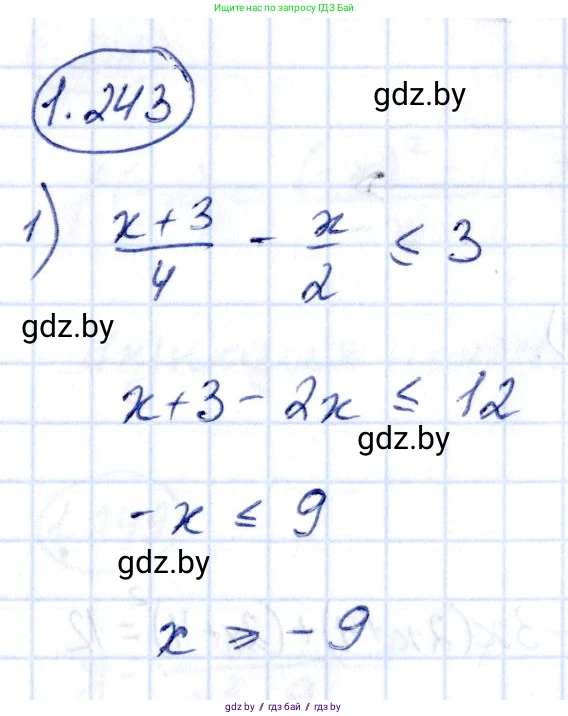 Ищите нас по запросу ГДЗ Бай
1.243
gdz.by
1) (x + 3)/4 - x/2 ≤ 3
gdz.by
x + 3 - 2x ≤ 12
gdz.by
- x ≤ 9
gdz.by
x ≥ - 9
gdz by // гдз бай // gdz.by